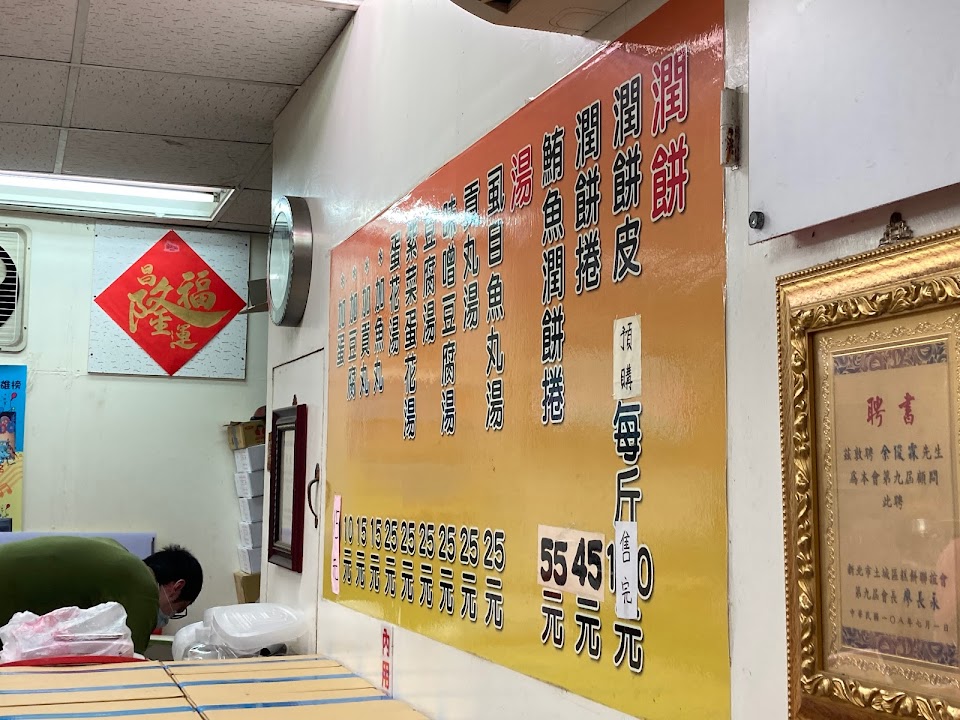 潤餅
潤餅皮 預購 每斤 售完 元
潤餅捲 45元
鮪魚潤餅捲 55元
湯
虱目魚丸湯 25元
貢丸湯 25元
味噌豆腐湯 25元
豆腐湯 25元
紫菜蛋花湯 25元
蛋花湯 25元
*加魚丸 15元
*加貢丸 15元
*加豆腐 10元
*加蛋 元
內用
昌隆福運
雄榜
聘書
茲敦聘 先生
為本會第九屆顧問
此聘
新北市土城區糕餅聯誼會
第九屆會長 廖長永
中華民國一〇八年七月一日